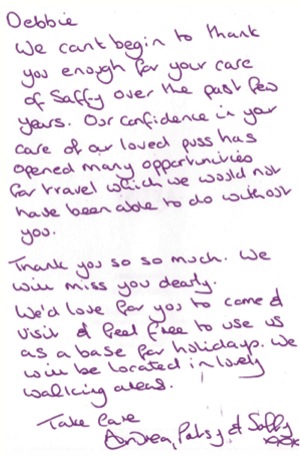 Debbie
We can't begin to thank
you enough for your care
of Saffy over the past few
years. Our confidence in your
care of our loved puss has
opened many opportunities
for travel which we would not
have been able to do without
you.
Thank you so so much. We
will miss you dearly.
We'd love for you to come &
visit & feel free to use us
as a base for holidays. We
will be located in lovely
walking areas.
Take Care
Andrea, Patsy & Saffy
xox